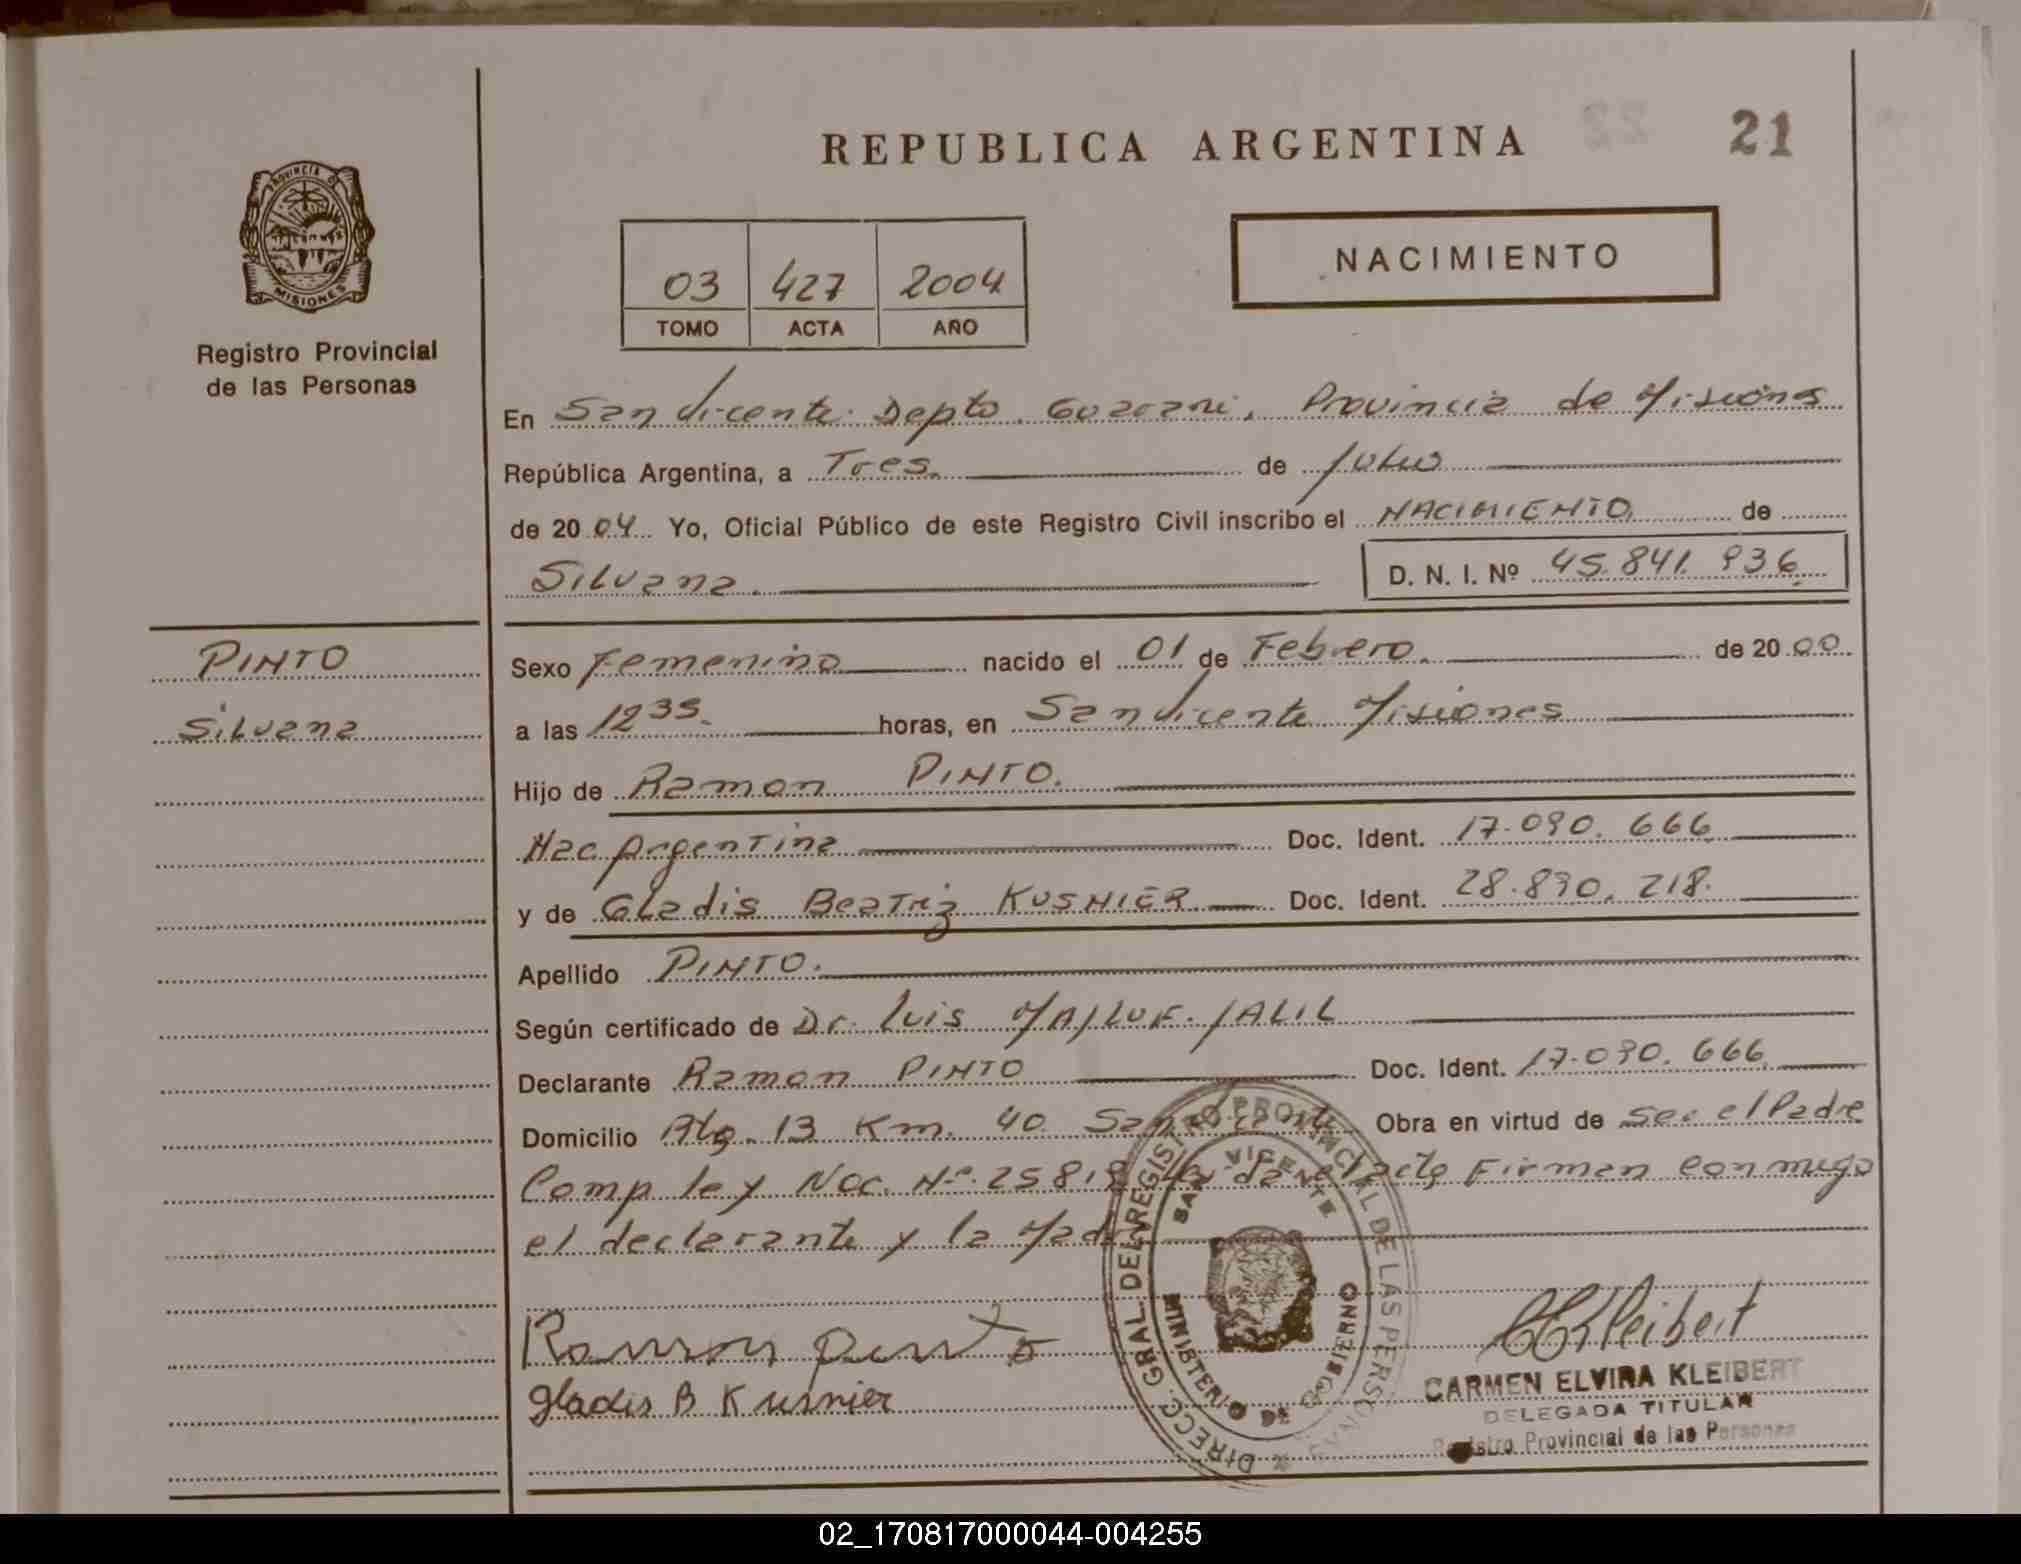 REPUBLICA ARGENTINA
21
PROVINCIA DE
MISIONES
Registro Provincial
de las Personas
03 427 2004
TOMO ACTA AÑO
NACIMIENTO
En San Vicente Depto. Guarani, Provincia de Misiones
República Argentina, a Tres. de Julio
de 2004 Yo, Oficial Público de este Registro Civil inscribo el NACIMIENTO. de
Silvana. D. N. I. Nº 45.841.936.
PINTO
Silvana
Sexo Femenino nacido el 01 de Febrero. de 2000.
a las 12 35. horas, en San Vicente Misiones
Hijo de Ramon PINTO.
Nac Argentina Doc. Ident. 17.090.666
y de Gladis Beatriz KUSNIER Doc. Ident. 28.890.218.
Apellido PINTO.
Según certificado de Dr. Luis MAJLUF. JALIL
Declarante Ramon PINTO Doc. Ident. 17.090.666
Domicilio Rta. 13 Km. 40 San Vicente Obra en virtud de ser el Padre
Comp ley Nac. Nº 25.819 acta Firman conmigo
el declarante y la Mad
Ramon Pinto
Gladis B Kusnier
DIRECC. GRAL DEL REGISTRO PROVINCIAL DE LAS PERSONAS
SAN VICENTE
MINISTERIO DE GOBIERNO
CKleibert
CARMEN ELVIRA KLEIBERT
DELEGADA TITULAR
Registro Provincial de las Personas
02_170817000044-004255